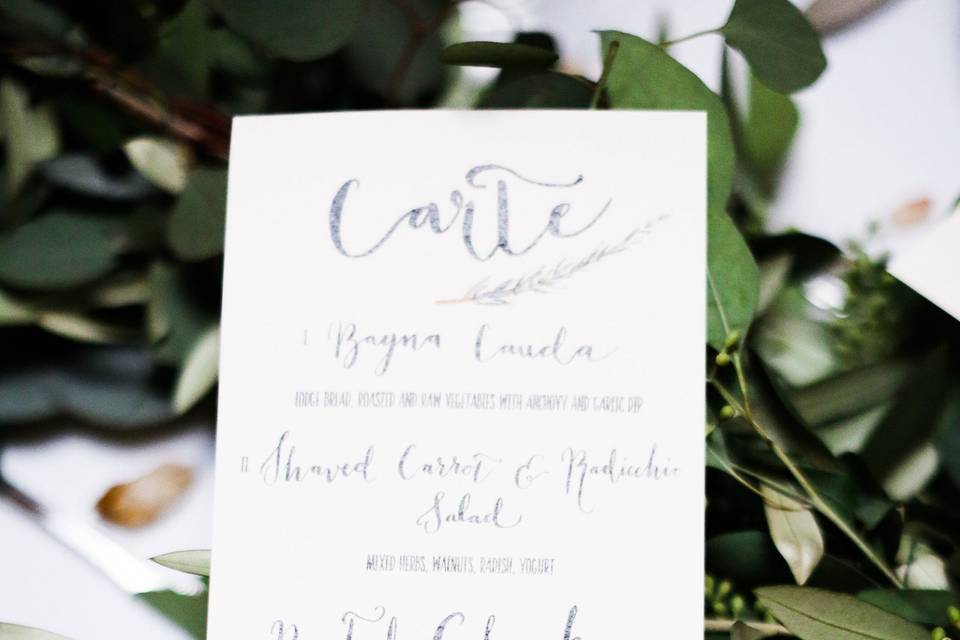 Carte
I Bagna Cauda
FORGE BREAD, ROASTED AND RAW VEGETABLES WITH ANCHOVY AND GARLIC DIP
II. Shaved Carrot & Radicchio
Salad
MIXED HERBS, WALNUTS, RADISH, YOGURT